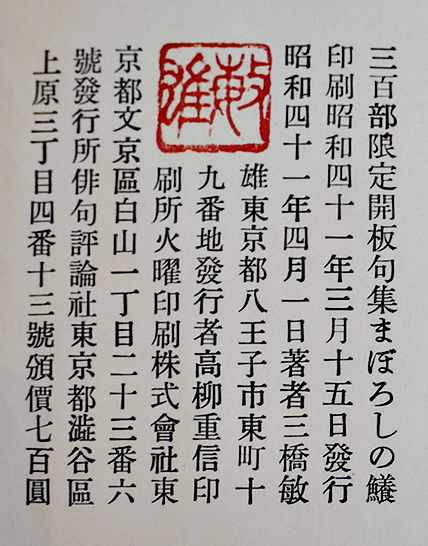 三百部限定開板句集まぼろしの鱶
印刷昭和四十一年三月十五日發行
昭和四十一年四月一日著者三橋敏
雄東京都八王子市東町十
九番地發行者高柳重信印
刷所火曜印刷株式會社東
京都文京區白山一丁目二十三番六
號發行所俳句評論社東京都澁谷區
上原三丁目四番十三號頒價七百圓
敏雄